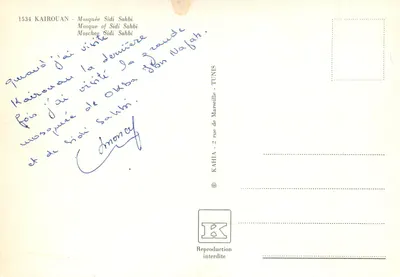 1534 KAIROUAN - Mosquée Sidi Sahbi
Mosque of Sidi Sahbi
Moschee Sidi Sahbi
quand j'ai visité
Kairouan la dernière
fois j'ai visité la grande
mosquée de Okba Ibn Nafah.
et de Sidi Sahbi.
Moncef
KAHIA - 2 rue de Marseille - TUNIS
K
Reproduction
interdite